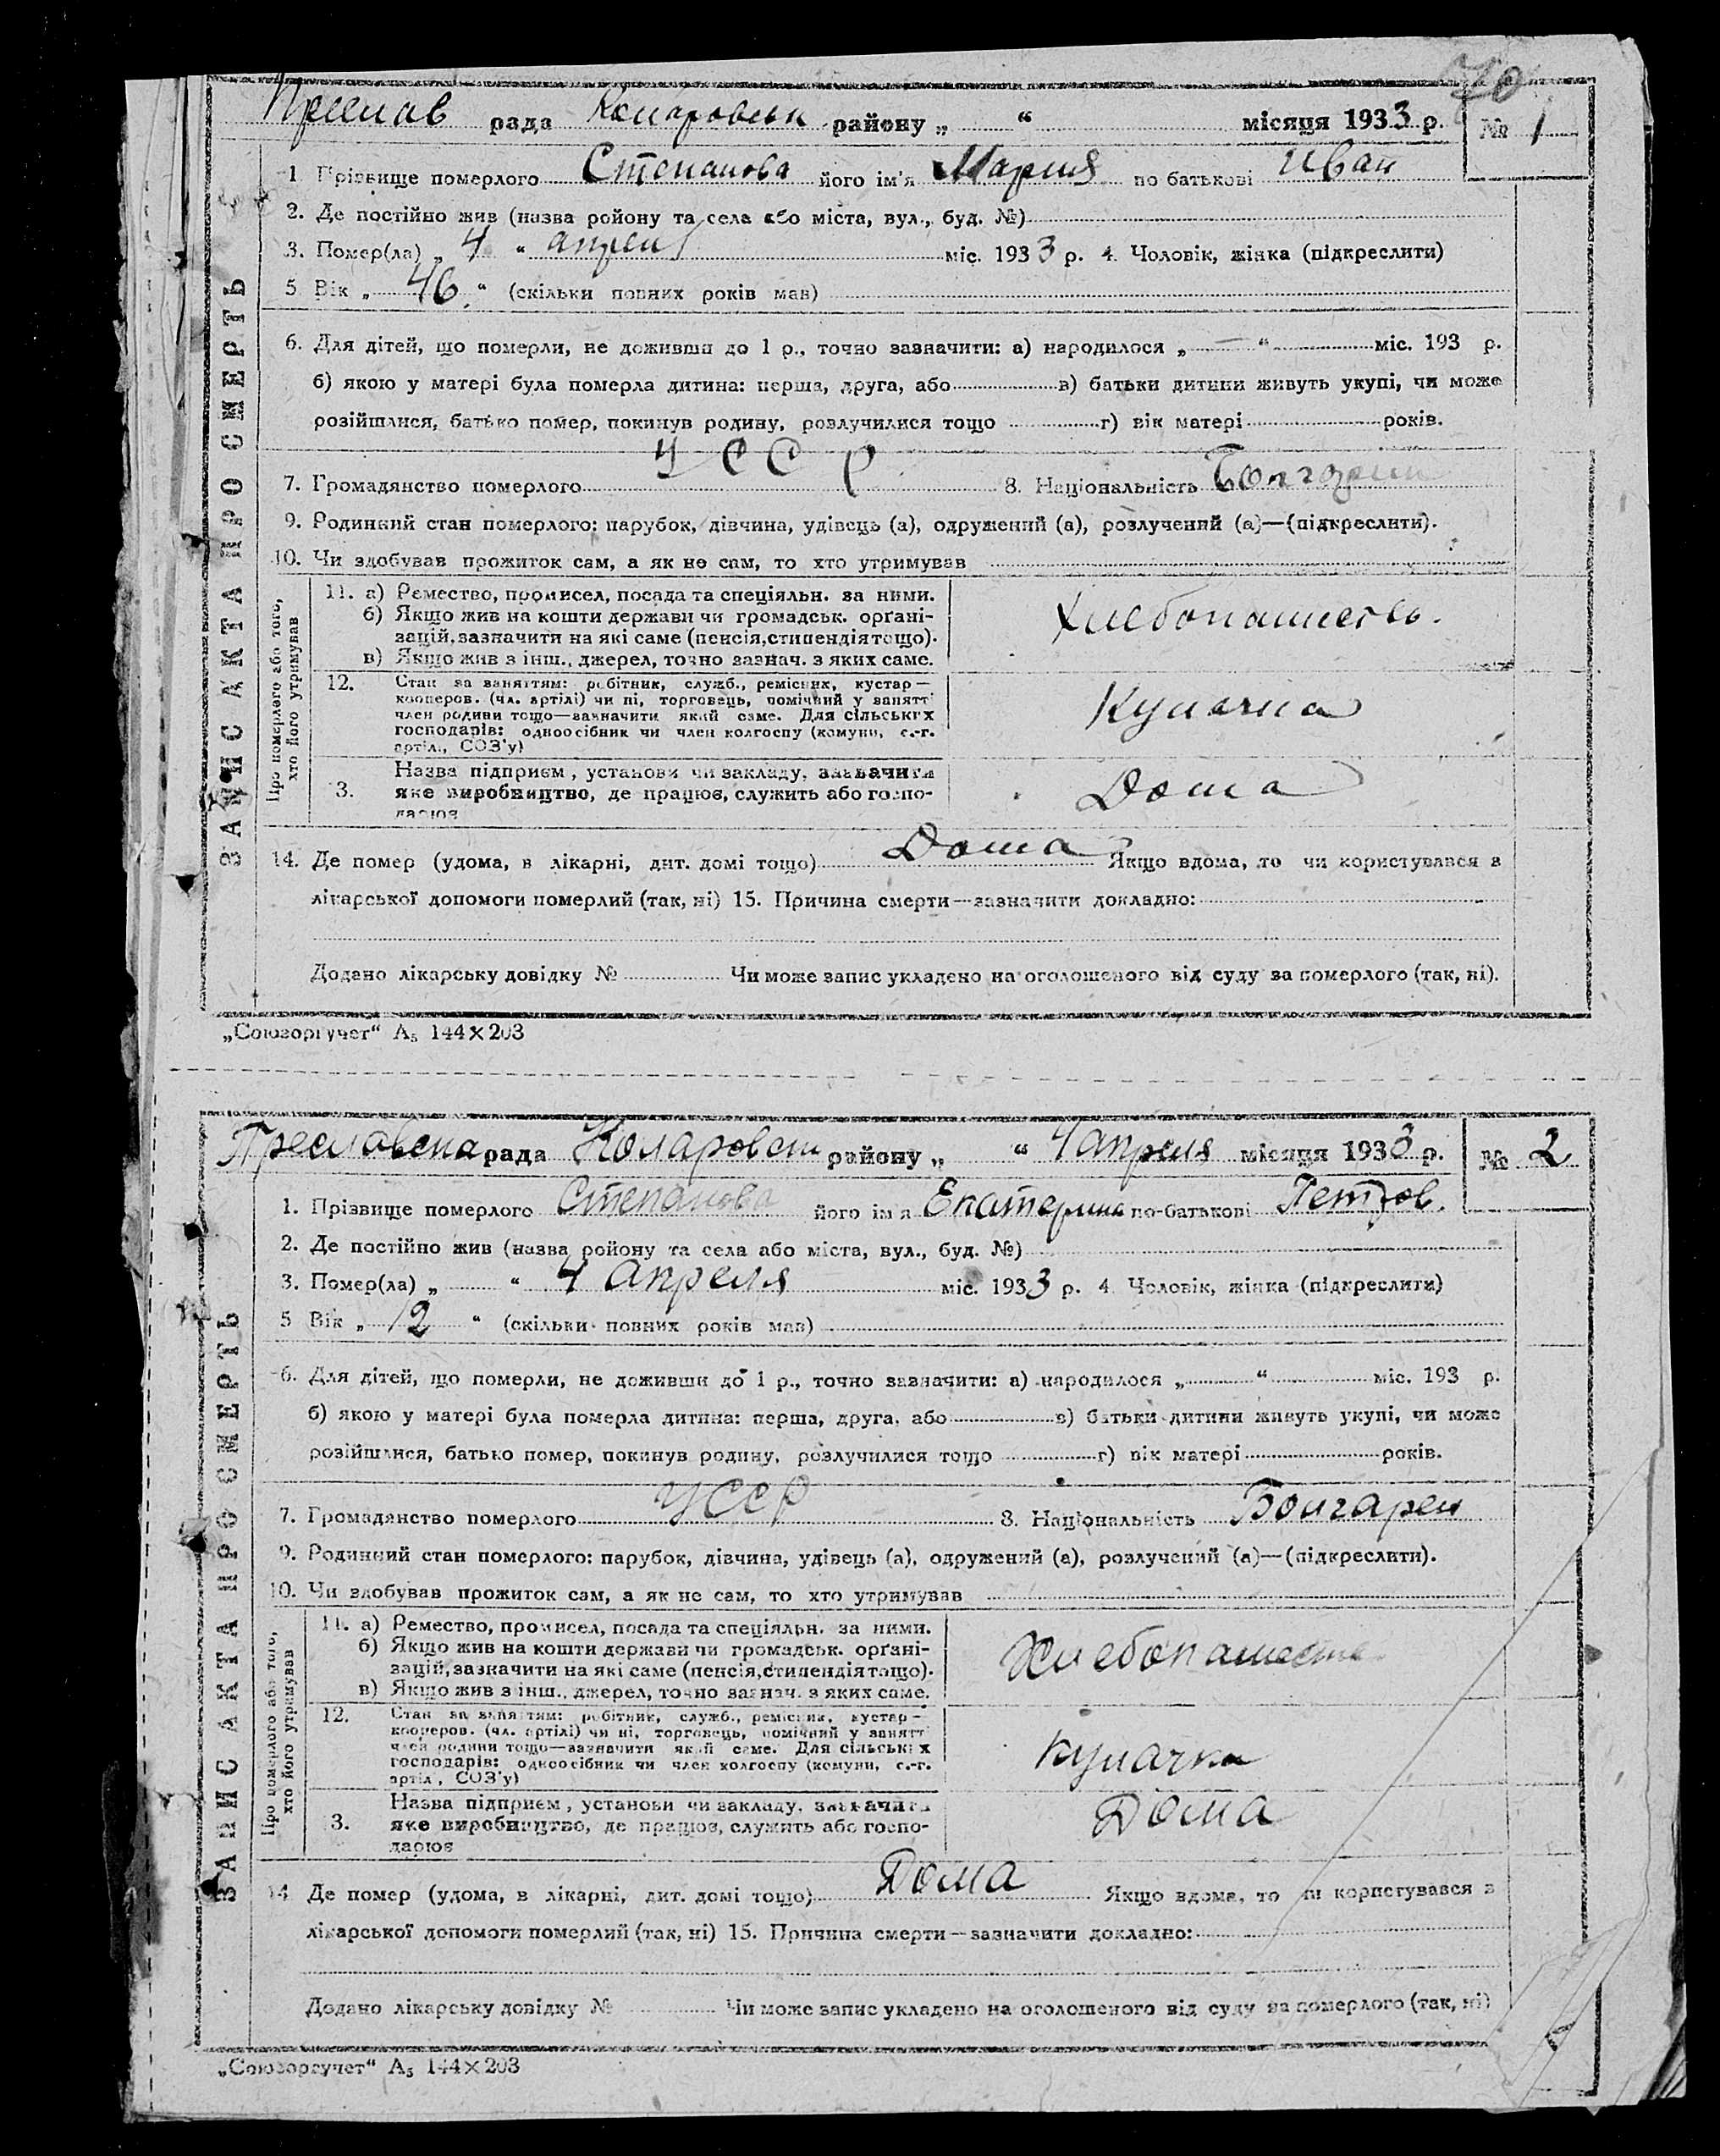 70
Преслав рада Коларовськ району „ “ місяця 1933 р. № 1
1 Прізвище померлого Степанова його ім'я Мария по батькові Иван
2. Де постійно жив (назва ройону та села або міста, вул., буд. №)
3. Помер(ла) „ 4 “ апреля міс. 1933 р. 4. Чоловік, жінка (підкреслити)
5 Вік „ 46 “ (скільки повних років мав)
6. Для дітей, що померли, не доживши до 1 р., точно зазначити: а) народилося „ — “ міс. 193 р.
б) якою у матері була померла дитина: перша, друга, або в) батьки дитини живуть укупі, чи може
розійшлися, батько помер, покинув родину, розлучилися тощо г) вік матері років.
7. Громадянство померлого УССР 8. Національність Болгарин
9. Родинний стан померлого: парубок, дівчина, удівець (а), одружений (а), розлучений (а)—(підкреслити).
10. Чи здобував прожиток сам, а як не сам, то хто утримував
ЗАПИС АКТА ПРО СМЕРТЬ
Про померлого або того, хто його утримував
11. а) Ремество, промисел, посада та спеціяльн. за ними.
б) Якщо жив на кошти держави чи громадськ. орґані-
зацій, зазначити на які саме (пенсія, стипендія тощо).
в) Якщо жив з інш., джерел, точно зазнач. з яких саме.
Хлебопашеств.
12. Стан за заняттям: робітник, служб., ремісник, кустар—
кооперов. (чл. артілі) чи ні, торговець, помічний у занятті
член родини тощо—зазначити який саме. Для сільських
господарів: одноосібник чи член колгоспу (комуни, с.-г.
артіл., СОЗ'у)
Кулачка
3. Назва підприєм, установи чи закладу, зазначити
яке виробництво, де працює, служить або госпо-
дарює
Дома
14. Де помер (удома, в лікарні, дит. домі тощо) Дома Якщо вдома, то чи користувався з
лікарської допомоги померлий (так, ні) 15. Причина смерти—зазначити докладно:
Додано лікарську довідку № Чи може запис укладено на оголошеного від суду за померлого (так, ні).
„Союзоргучет“ А₅ 144×203
Преславська рада Коларовськ району „ “ 4 апреля місяця 1933 р. № 2
1. Прізвище померлого Степанова його ім'я Екатерина по-батькові Петров.
2. Де постійно жив (назва ройону та села або міста, вул., буд. №)
3. Помер(ла) „ “ 4 апреля міс. 1933 р. 4 Чоловік, жінка (підкреслити)
5 Вік „ 12 “ (скільки повних років мав)
6. Для дітей, що померли, не доживши до 1 р., точно зазначити: а) народилося „ “ міс. 193 р.
б) якою у матері була померла дитина: перша, друга, або в) батьки дитини живуть укупі, чи може
розійшлися, батько помер, покинув родину, розлучилися тощо г) вік матері років.
7. Громадянство померлого УССР 8. Національність Болгарен
9. Родинний стан померлого: парубок, дівчина, удівець (а), одружений (а), розлучений (а)—(підкреслити).
10. Чи здобував прожиток сам, а як не сам, то хто утримував
ЗАПИС АКТА ПРО СМЕРТЬ
Про померлого або того, хто його утримував
11. а) Ремество, промисел, посада та спеціяльн. за ними.
б) Якщо жив на кошти держави чи громадськ. орґані-
зацій, зазначити на які саме (пенсія, стипендія тощо).
в) Якщо жив з інш., джерел, точно зазнач. з яких саме.
Хлебопашеств
12. Стан за заняттям: робітник, служб., ремісник, кустар—
кооперов. (чл. артілі) чи ні, торговець, помічний у занятті
член родини тощо—зазначити який саме. Для сільських
господарів: одноосібник чи член колгоспу (комуни, с.-г.
артіл., СОЗ'у)
Кулачка
3. Назва підприєм, установи чи закладу, зазначити
яке виробництво, де працює, служить або госпо-
дарює
Дома
14 Де помер (удома, в лікарні, дит. домі тощо) Дома Якщо вдома, то чи користувався з
лікарської допомоги померлий (так, ні) 15. Причина смерти—зазначити докладно:
Додано лікарську довідку № Чи може запис укладено на оголошеного від суду за померлого (так, ні)
„Союзоргучет“ А₅ 144×203